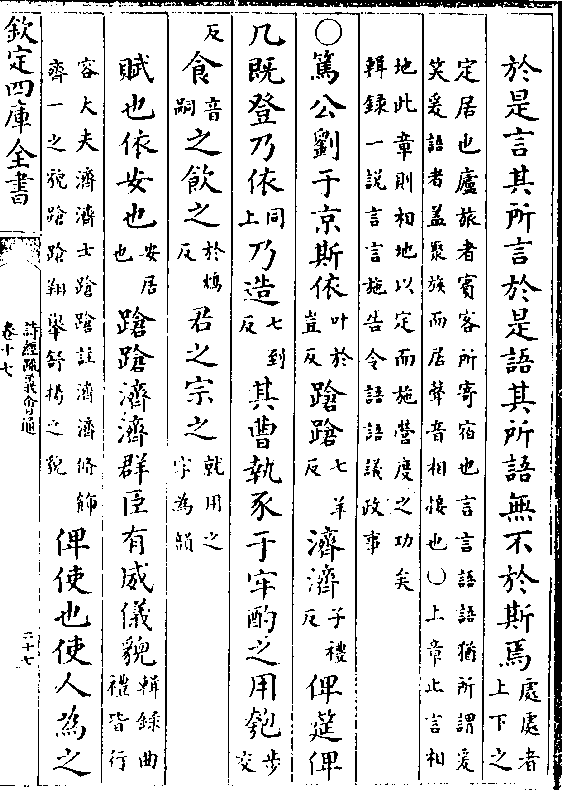 於是言其所言於是語其所語無不於斯焉處處者上下之
定居也廬旅者賓客所寄宿也言言語語猶所謂爰
笑爰語者蓋聚族而居聲音相接也〇上章止言相
地此章則相地以定而施營度之功矣
輯録一說言言施告令語語議政事
〇篤公劉于京斯依叶於豈反蹌蹌七羊反濟濟子禮反俾筵俾
几既登乃依同上乃造七到反其曹執豕于牢酌之用匏步交
反食音嗣之飲之於鴆反君之宗之就用之字為韻
賦也依安也安居也蹌蹌濟濟群臣有威儀貌輯録曲禮皆行
容大夫濟濟士蹌蹌註濟濟脩飾齊一之貌蹌蹌翔舉舒揚之貌俾使也使人為之
欽定四庫全書
詩經疏義會通
卷十七
二十七